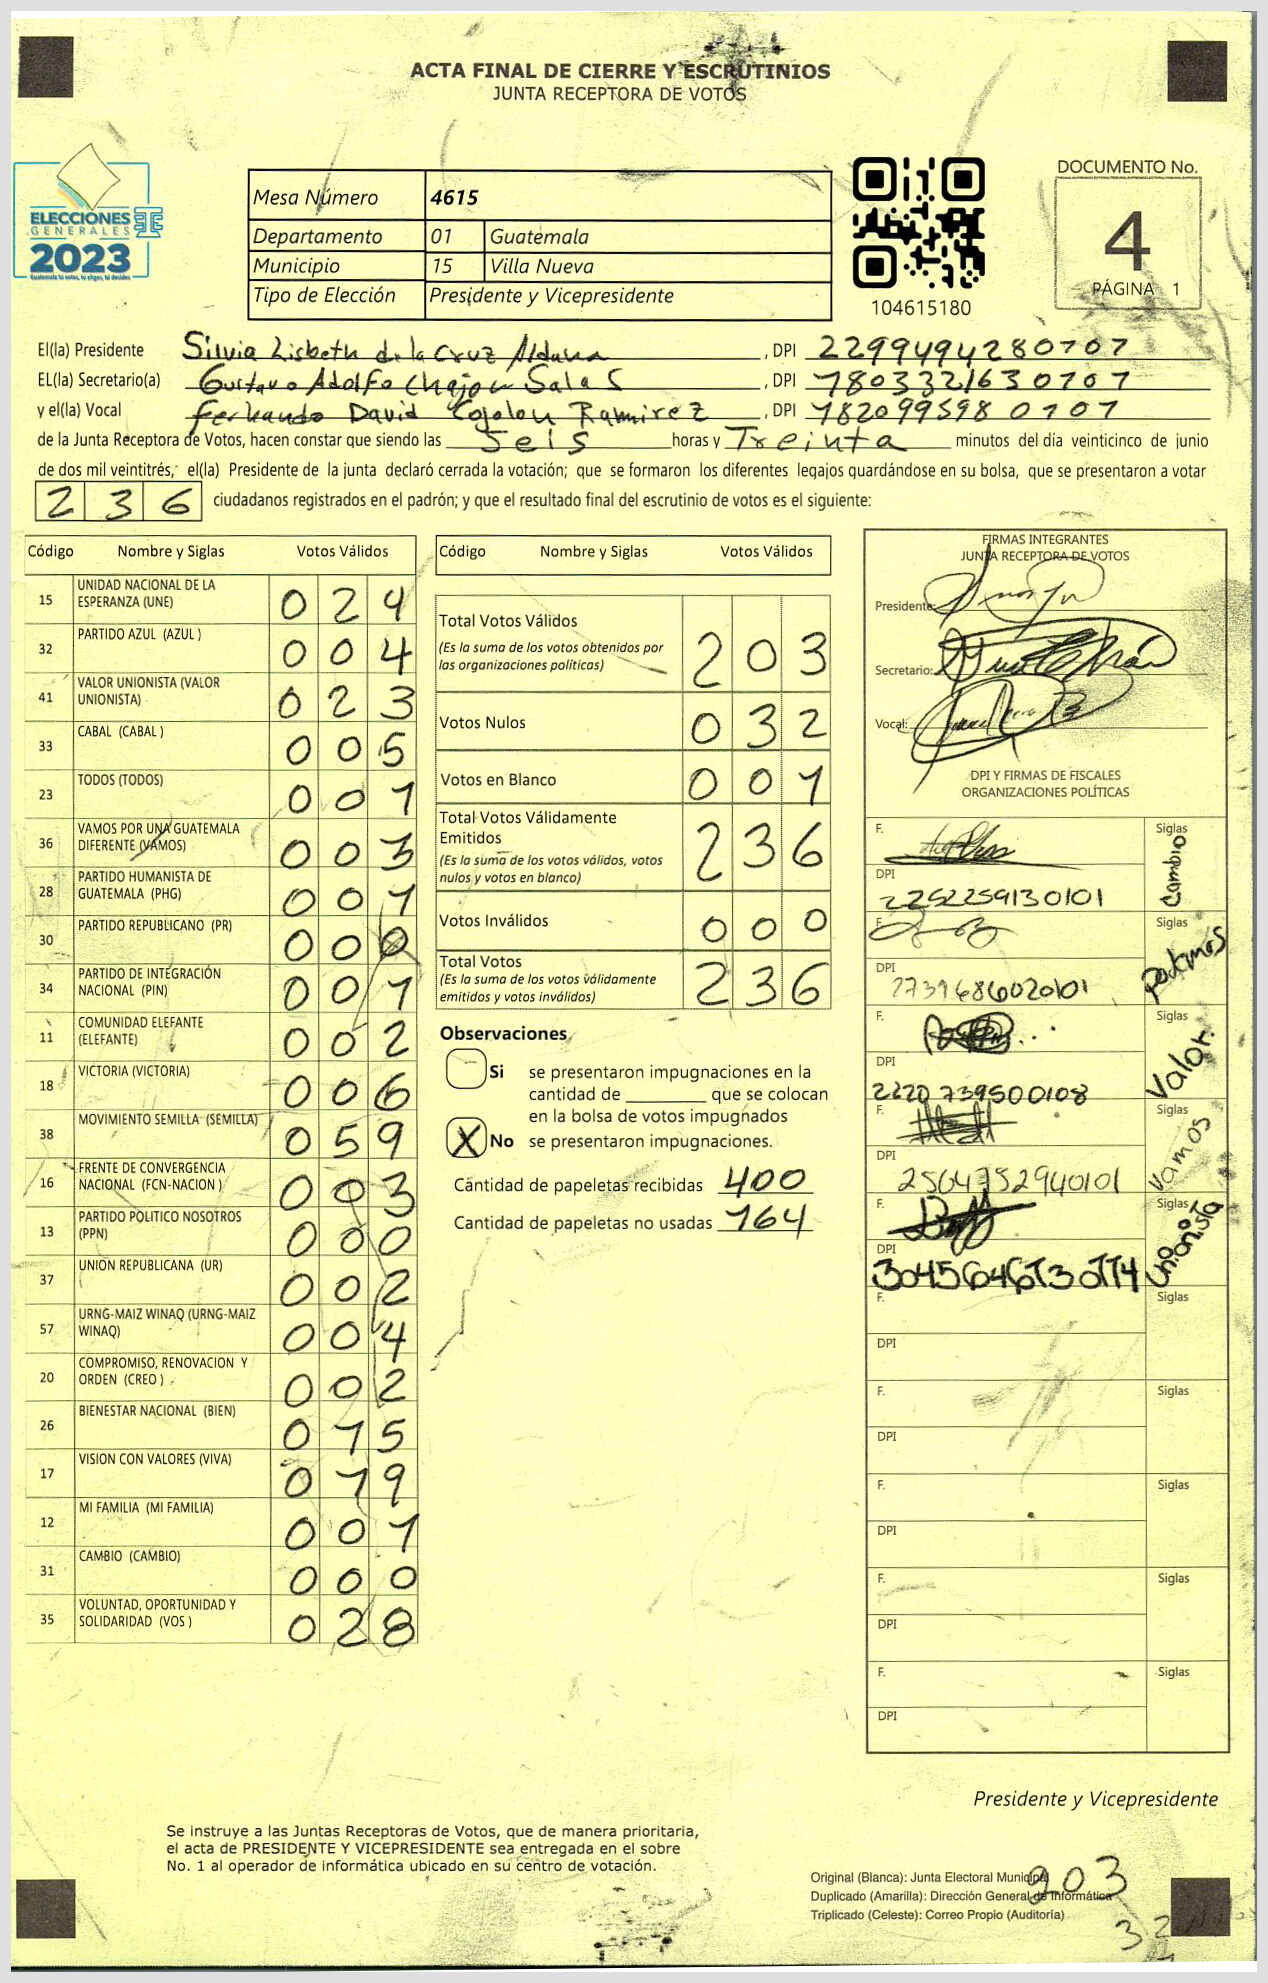 ACTA FINAL DE CIERRE Y ESCRUTINIOS
JUNTA RECEPTORA DE VOTOS
ELECCIONES
GENERALES
2023
Mesa Número 4615
Departamento 01 Guatemala
Municipio 15 Villa Nueva
Tipo de Elección Presidente y Vicepresidente
104615180
DOCUMENTO No.
4
PÁGINA 1
El(la) Presidente Silvia Lisbeth de la Cruz Aldana, DPI 2299494280707
EL(la) Secretario(a) Gustavo Adolfo Chajon Salas, DPI 1803321630101
y el(la) Vocal Fernando David Cojolon Ramirez, DPI 1820995980101
de la Junta Receptora de Votos, hacen constar que siendo las Seis horas y Treinta minutos del día veinticinco de junio
de dos mil veintitrés, el(la) Presidente de la junta declaró cerrada la votación; que se formaron los diferentes legajos quardándose en su bolsa, que se presentaron a votar
236 ciudadanos registrados en el padrón; y que el resultado final del escrutinio de votos es el siguiente:
Código Nombre y Siglas Votos Válidos
15 UNIDAD NACIONAL DE LA ESPERANZA (UNE) 024
32 PARTIDO AZUL (AZUL ) 004
41 VALOR UNIONISTA (VALOR UNIONISTA) 023
33 CABAL (CABAL ) 005
23 TODOS (TODOS) 001
36 VAMOS POR UNA GUATEMALA DIFERENTE (VAMOS) 003
28 PARTIDO HUMANISTA DE GUATEMALA (PHG) 001
30 PARTIDO REPUBLICANO (PR) 000
34 PARTIDO DE INTEGRACIÓN NACIONAL (PIN) 001
11 COMUNIDAD ELEFANTE (ELEFANTE) 002
18 VICTORIA (VICTORIA) 006
38 MOVIMIENTO SEMILLA (SEMILLA) 059
16 FRENTE DE CONVERGENCIA NACIONAL (FCN-NACION ) 003
13 PARTIDO POLITICO NOSOTROS (PPN) 000
37 UNION REPUBLICANA (UR) 002
57 URNG-MAIZ WINAQ (URNG-MAIZ WINAQ) 004
20 COMPROMISO, RENOVACION Y ORDEN (CREO ) 002
26 BIENESTAR NACIONAL (BIEN) 015
17 VISION CON VALORES (VIVA) 019
12 MI FAMILIA (MI FAMILIA) 001
31 CAMBIO (CAMBIO) 000
35 VOLUNTAD, OPORTUNIDAD Y SOLIDARIDAD (VOS ) 028
Código Nombre y Siglas Votos Válidos
Total Votos Válidos 203
(Es la suma de los votos obtenidos por las organizaciones políticas)
Votos Nulos 032
Votos en Blanco 001
Total Votos Válidamente Emitidos 236
(Es la suma de los votos válidos, votos nulos y votos en blanco)
Votos Inválidos 000
Total Votos 236
(Es la suma de los votos válidamente emitidos y votos inválidos)
Observaciones
Si se presentaron impugnaciones en la
cantidad de ________ que se colocan
en la bolsa de votos impugnados
X No se presentaron impugnaciones.
Cantidad de papeletas recibidas 400
Cantidad de papeletas no usadas 164
FIRMAS INTEGRANTES
JUNTA RECEPTORA DE VOTOS
Presidente:
Secretario:
Vocal:
DPI Y FIRMAS DE FISCALES
ORGANIZACIONES POLÍTICAS
F. Siglas Cambio
DPI 2252259130101
F. Siglas Podemos
DPI 2739686020101
F. Siglas Valor.
DPI 2220739500108
F. Siglas Vamos
DPI 2504752940101
F. Siglas Unionista
DPI
F. Siglas
DPI
F. Siglas
DPI
F. Siglas
DPI
F. Siglas
DPI
F. Siglas
DPI
Presidente y Vicepresidente
Se instruye a las Juntas Receptoras de Votos, que de manera prioritaria,
el acta de PRESIDENTE Y VICEPRESIDENTE sea entregada en el sobre
No. 1 al operador de informática ubicado en su centro de votación.
Original (Blanca): Junta Electoral Municipal
Duplicado (Amarilla): Dirección General de Informática
Triplicado (Celeste): Correo Propio (Auditoría)
203
32